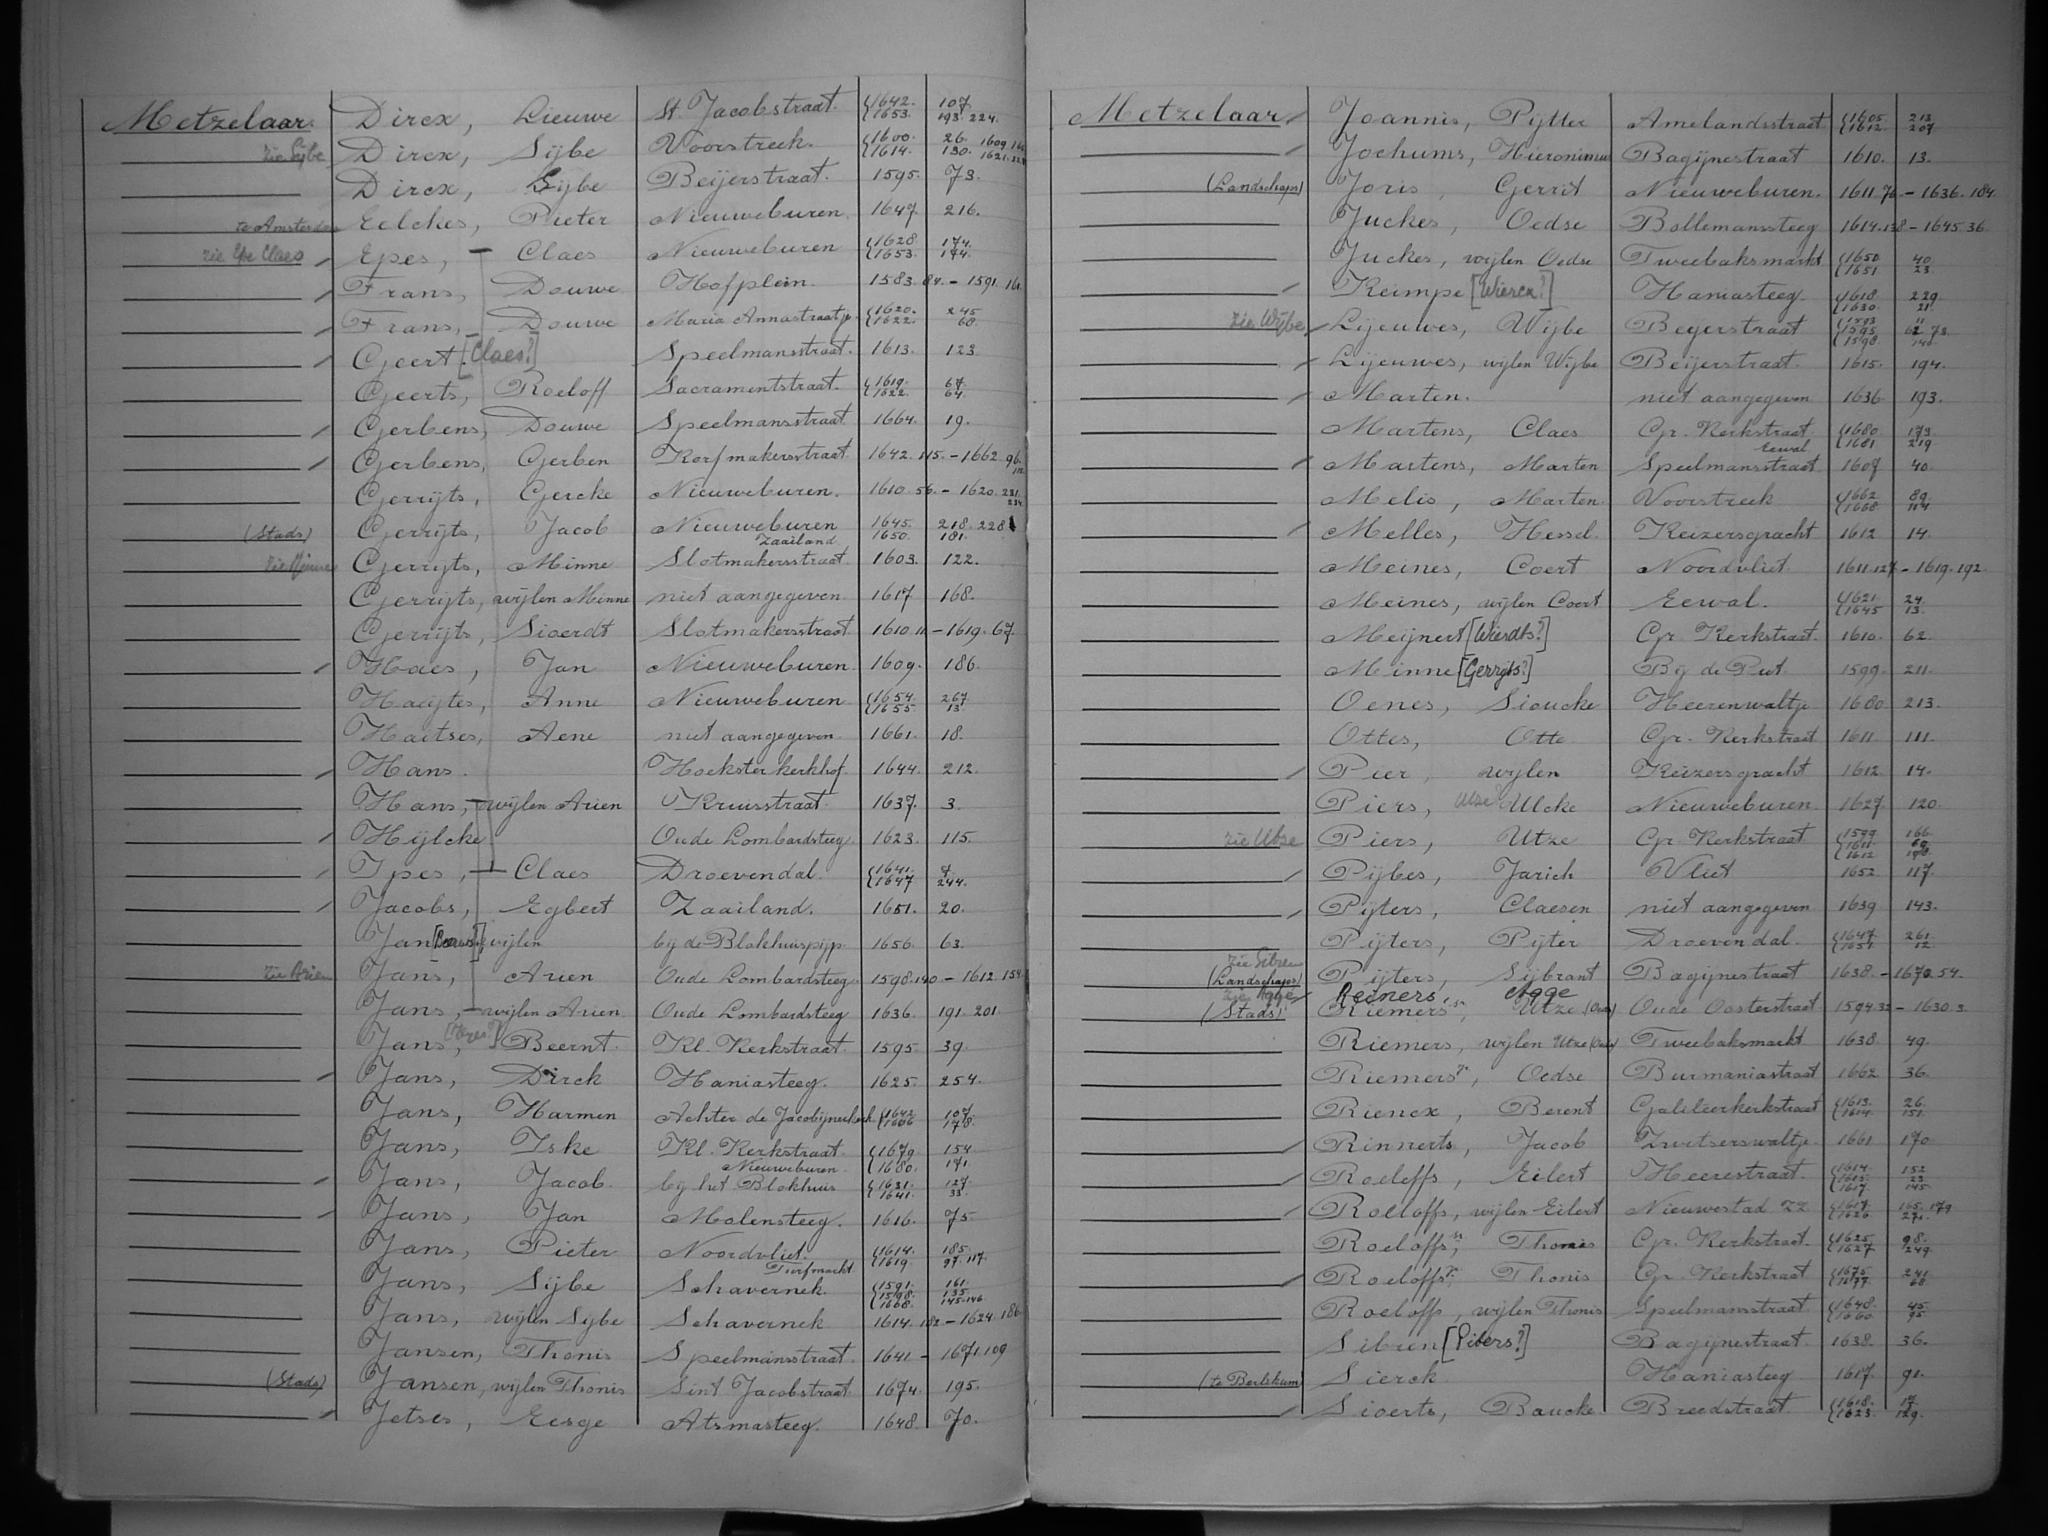 Metzelaar. Dircx, Lieuwe St. Jacobstraat. {1642. 107. {1653. 193. 224.
zie Sybe Dircx, Sijbe Voorstreek. {1600. 26. 1609. {1614. 130. 1621.
Dircx, Sijbe Beijerstraat. 1595. 73.
te Amsterdam Eelckes, Pieter Nieuweburen. 1647. 216.
zie Ype Claes Epes, Claes Nieuweburen {1628. 174. {1653. 174.
Frans, Douwe Hofplein. 1583. 84. - 1591. 161.
Frans, Douwe Maria Annastraatje {1620. 245 {1622. 60.
Geert [Claes?] Speelmansstraat. 1613. 123
Geerts, Roeloff Sacramentstraat. {1619. 67. {1622. 64.
Gerbens, Douwe Speelmansstraat 1664. 19.
Gerbens, Gerben Korfmakersstraat. 1642. 115. - 1662. 96.
Gerrijts, Gercke Nieuweburen. 1610. 56. - 1620. 231. 234.
(Stads) Gerrijts, Jacob Nieuweburen Zaailand 1645. 218. 228 1650. 181.
zie Minne Gerrijts, Minne Slotmakersstraat 1603. 122.
Gerrijts, wijlen Minne niet aangegeven 1617 168.
Gerrijts, Sioerdt Slotmakersstraat 1610. 11. - 1619. 67.
Haes, Jan Nieuweburen 1609. 186.
Haeijtes, Anne Nieuweburen {1654. 267. {1655 13.
Haitses, Aene niet aangegeven 1661. 18.
Hans. Hoeksterkerkhof. 1644. 212.
Hans, wijlen Arien Kruisstraat. 1637. 3.
Hijlcke Oude Lombardsteeg. 1623. 115.
Ypes, Claes Droevendal. {1641. 7. {1647 244.
Jacobs, Egbert Zaailand. 1651. 20.
Jan wijlen bij de Blokhuispijp 1656. 63.
zie Arien Jans, Arien Oude Lombardsteeg 1598. 140 - 1612. 154.
Jans, wijlen Arien Oude Lombardsteeg 1636. 191. 201.
Jans, Beernt. Kl. Kerkstraat. 1595. 39.
Jans, Dirck Haniasteeg. 1625. 254.
Jans, Harmen Achter de Jacobijnerkerk {1642. 107. {1666 178.
Jans, Iske Kl. Kerkstraat. Nieuweburen {1679 154 {1680. 171
Jans, Jacob. bij het Blokhuis {1631. 127. {1641. 33.
Jans, Jan Molensteeg. 1616. 75.
Jans, Pieter Noordvliet. Turfmarkt {1614. 185. {1619. 97. 117.
Jans, Sijbe Schavernek. {1591. 161. {1598. 135. {1608. 145. 146.
Jans, wijlen Sybe Schavernek 1614. 182 - 1624. 186.
Jansen, Thonis Speelmansstraat. 1641 - 1671. 109
(Stads) Jansen, wijlen Thonis Sint Jacobstraat 1674. 195.
Jetses, Eesge Atsmasteeg. 1648. 70.
Metzelaar Joannis, Pijtter Amelandsstraat {1605. 213. {1612. 207.
Jochums, Hieronimus Bagijnestraat 1610. 13.
(Landschaps) Joris, Gerrit Nieuweburen. 1611. 76. - 1636. 184.
Juckes, Oedse Bollemanssteeg 1614. 138 - 1645. 36.
Juckes, wijlen Oedse Tweebaksmarkt {1650. 40. {1651 23.
Keimpe [Wiercx?] Haniasteeg. {1618. 229. {1630. 21.
zie Wijbe Lijeuwes, Wijbe Beyerstraat {1593 11 {1595. 62 73. {1598. 140.
Lijeuwes, wijlen Wijbe Beijerstraat. 1615. 194.
Marten. niet aangegeven 1636 193.
Martens, Claes Gr. Kerkstraat. Eewal {1680. 173. {1681 219.
Martens, Marten Speelmansstraat 1607 40.
Melis, Marten. Voorstreek {1662 89. {1668 114
Melles, Hessel. Keizersgracht 1612 14.
Meines, Coert Noordvliet. 1611. 127 - 1619. 192.
Meines, wijlen Coert Eewal. {1621. 24. {1645 13.
Meijnert [Wierdts?] Gr. Kerkstraat. 1610. 62.
Minne [Gerryts?] Bij de Put. 1599. 211.
Oenes, Sioucke Heerenwaltje 1680 213.
Ottes, Otte Gr. Kerkstraat 1611. 111.
Pier, wijlen Keizersgracht 1612. 14.
Piers, Utze? Ulcke Nieuweburen. 1627. 120.
zie Utze Piers, Utze Gr. Kerkstraat {1599 166 {1611. 69. {1612 198.
Pijbes, Jarich Vliet 1652 117.
Pijters, Claesen niet aangegeven 1639 143.
Pijters, Pijter Droevendal. {1647 261. {1651. 12.
zie Sibren (Landschaps) Pijters, Sijbrant Bagijnestraat 1638. - 1670. 54.
zie Agge Reiners, Agge
(Stads) Riemers sr., Utze (Oeds) Oude Oosterstraat 1594. 32 - 1630. 3.
Riemers, wijlen Utze (Oeds) Tweebaksmarkt 1638 49.
Riemers jr., Oedse Burmaniastraat 1662. 36.
Riencx, Berent Galileerkerkstraat {1613. 26. {1614. 151.
Rinnerts, Jacob Zwitserswaltje. 1661 170
Roeleffs, Eilert Heerestraat. {1614. 152 {1615. 23. {1617. 145.
Roeloffs, wijlen Eilert Nieuwestad ZZ {1617. 165. 179 {1626. 271.
Roeloffs sr., Thonis Gr. Kerkstraat. {1625. 98. {1627 249.
Roeloffs jr., Thonis Gr. Kerkstraat {1675. 241. {1677. 68.
Roeloffs, wijlen Thonis Speelmansstraat. {1648. 45. {1660. 95.
Sibren [Piters?] Bagijnestraat. 1638. 36.
(te Berlikum) Sierck Haniasteeg 1617. 91.
Sioerts, Baucke Breedstraat. {1618. 17. {1623. 129.